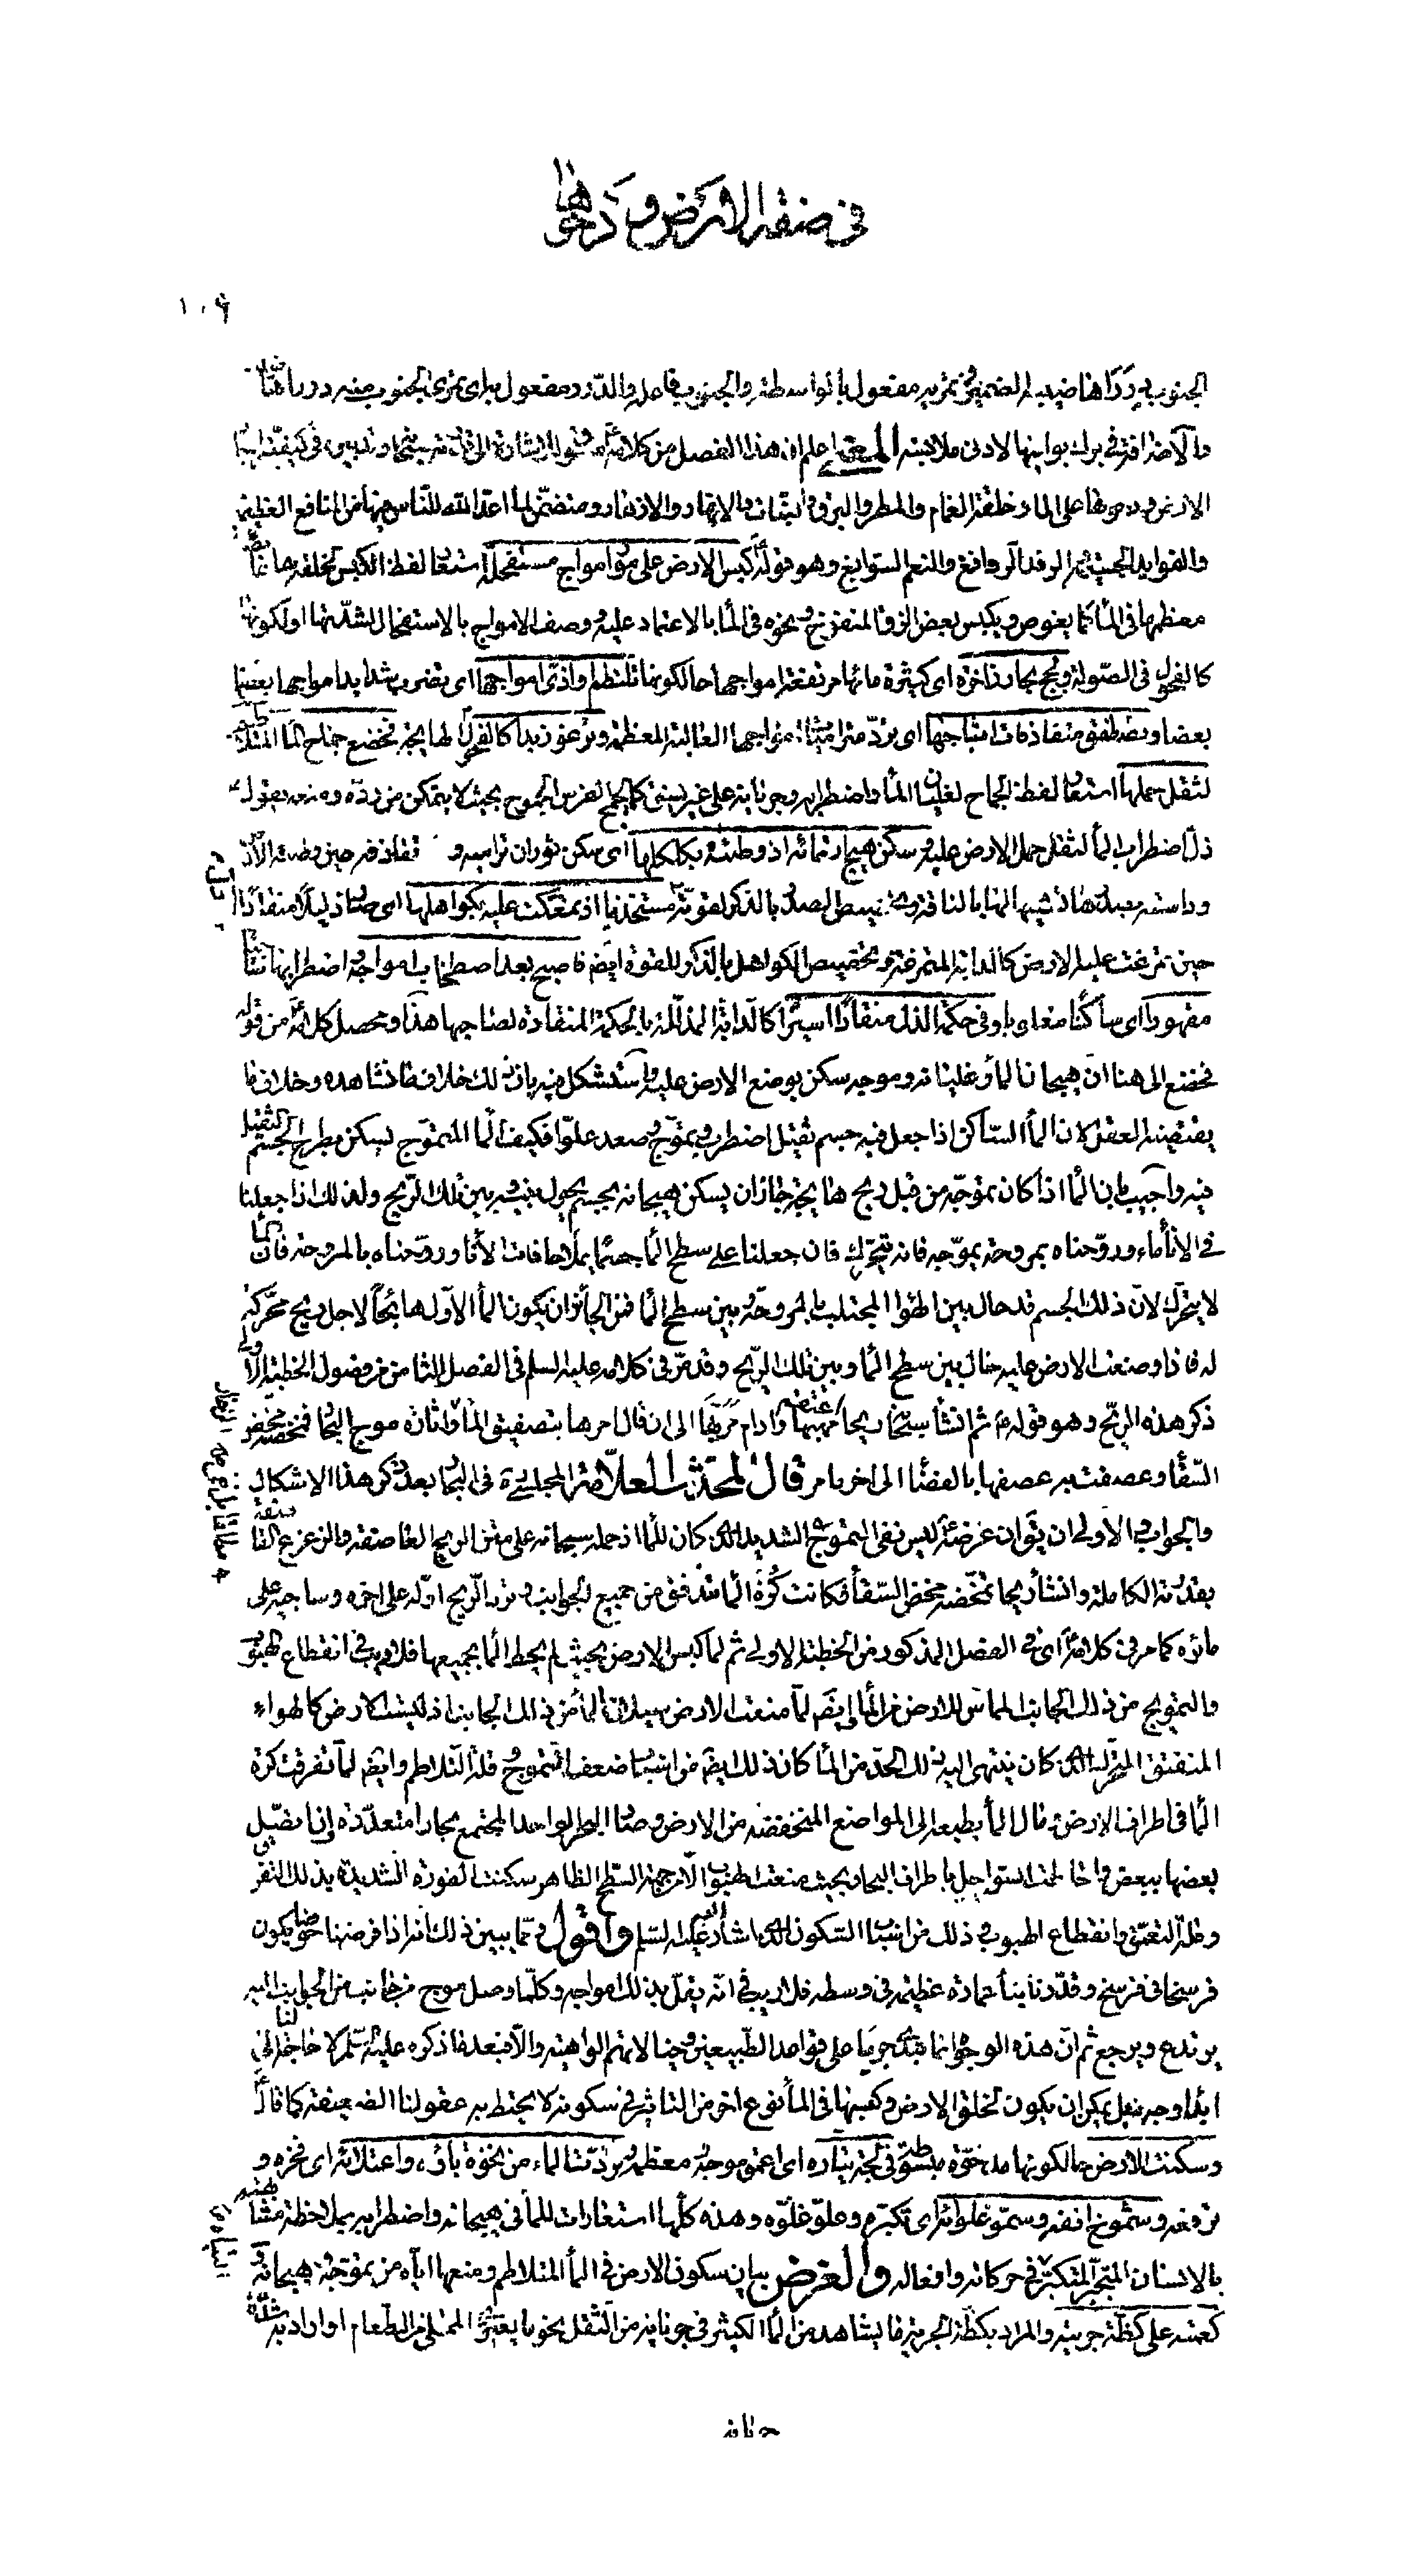 في صفة الارض و دحوها
١٠٦
الجنوب به دررا هاضيبه الضمير في تمريه مفعول بالواسطة والجنوب فاعله والدرر مفعول به اى تمرى الجنوب منه درر اهاضيبه
والاضافة في برك بوانيها لادنى ملابسة المعنى اعلم ان هذا الفصل من كلامه مسوق للاشارة الى قدرته سبحانه وتدبيره في كيفية ايجاد
الارض ودحوها على الماء وخلقة الغمام والمطر والبرق والنبات والانهار والازهار ومتضمن لما اعد الله للناس فيها من المنافع العظيمة
والفوايد الجسيمة الرفد الروافغ والنعم السوابغ وهو قوله كبس الارض على مور امواج مستفحلة استعار لفظ الكبس لخلقه لها غائصا
معظمها في الماء كما يغوص ويكبس بعض الزق المنفوخ ونحوه في الماء بالاعتماد عليه ووصف الامواج بالاستفحال لشدتها او لكونها
كالفحول في الصولة ولجج بحار زاخرة اى كثيرة ماؤها مرتفعة امواجها حالكونها تلتطم واذى امواجها اى تضرب شدايد امواجها بعضها
بعضا وتصطفق متقاذفات اثباجها اى يرد مترامية امواجها العالية المعظمة وترغو زبدا كالفحول لها يجة فخضع جماح الماء المتلاطم
لثقل حملها استعار لفظ الجماح لغليان الماء واضطرابه وجريانه على غير نسق كما يجمح الفرس الجموح بحيث لا يتمكن من رده ومنعه يقول
ذل اضطراب الماء لثقل حمل الارض عليه وسكن هيج ارتمائه اذ وطئته بكلكلها اى سكن ثوران تراميه و تقاذفه حين وطئته الارض
وداسته بصدرها تشبيها لها بالناقة وتخصيص الصدر بالذكر لقوته وذل مستخذيا اذ تمعكت عليه بكواهلها اى صار ذليلا منقادا
حين تمرغت عليه الارض كالدابة المتمرغة وتخصيص الكواهل بالذكر للقوة ايضا فاصبح بعد اصطخاب امواجه اى اضطرابها ساجيا
مقهورا اى ساكنا مغلوبا وفي حكمة الذل منقادا اسيرا كالدابة المذللة بالحكمة المنقادة لصاحبها هذا ومحصل كلامه من قوله
فخضع الى هنا ان هيجان الماء وغليانه وموجه سكن بوضع الارض عليه واستشكل فيه بان ذلك خلاف ما نشاهده وخلاف ما
يقتضيه العقل لان الماء الساكن اذا جعل فيه جسم ثقيل اضطرب وتموج وصعد علوا فكيف الماء المتموج يسكن بطرح الجسم الثقيل
فيه واجيب بان الماء اذا كان تموجه من قبل ريح هايجة جاز ان يسكن هيجانه بجسم يحول بينه وبين تلك الريح ولذلك اذا جعلنا
في الاناء ماء وروحناه بمروحة تموجه فانه يتحرك فان جعلنا على سطح الماء جسما يملأ حافات الاناء وروحناه بالمروحة فان الماء
لا يتحرك لان ذلك الجسم قد حال بين الهواء المجتلب بالمروحة وبين سطح الماء فمن الجائز ان يكون الماء الاول هائجا لاجل ريح محركة
له فاذا وضعت الارض عليه حال بين سطح الماء وبين تلك الريح وقد مر في كلامه عليه السلم في الفصل الثامن من فصول الخطبة الاولى
ذكر هذه الريح وهو قوله ثم انشأ سبحانه ريحا اعتقم مهبها وادام مربها الى ان قال امرها بتصفيق الماء واثارة موج البحار فمخضته مخض
السقاء وعصفت به عصفها بالفضاء الى اخر ما مر قال المحدث العلامة المجلسي في البحار بعد ذكر هذا الاشكال
والجواب الاولى ان يقال ان غرضه ليس نفى التموج الشديد الذى كان للماء اذ حمله سبحانه على متن الريح العاصفة والزعزع القاصفة
بقدرته الكاملة وانشأ ريحا تمخضه مخض السقاء فكانت كرة الماء تتدفق من جميع الجوانب وترد الريح اوله على اخره وساجيه على
مائره كما مر في كلامه اى في الفصل المذكور من الخطبة الاولى ثم لما كبس الارض بحيث لم يحط الماء بجميعها فلا ريب في انقطاع هبوب
والتموج من ذلك الجانب المماس للارض من الماء وايضا لما منعت الارض سيلان الماء من ذلك الجانب اذ ليست الارض كالهواء
المنفتق المتحرك الذى كان ينتهى اليه ذلك الحد من الماء كان ذلك ايضا من اسباب ضعف التموج وقلة التلاطم وايضا لما تفرقت كرة
الماء في اطراف الارض ومال الماء بطبعه الى المواضع المنخفضة من الارض وصار البحر الواحد المجتمع بحارا متعددة وان اتصل
بعضها ببعض واحاطت السواحل باطراف البحار بحيث منعت الهبوب الا من جهة السطح الظاهر سكنت الفورة الشديدة بذلك التفرق
وقلة التعمق وانقطاع الهبوب ذلك من اسباب السكون الذى اشار اليه عليه السلم واقول ومما يبين ذلك انا اذا فرضنا حوضا يكون
فرسخا في فرسخ وقدرنا بناء عمارة عظيمة في وسطه فلا ريب في انه يقل بذلك امواجه وكلما وصل موج من جانب من الجوانب اليه
يرتدع ويرجع ثم ان هذه الوجوه انما تبدى جريا على قواعد الطبيعيين وخيالاتهم الواهية والا فبعد ما ذكره عليه السلم لا حاجة لنا الى
ابداء وجه بل يمكن ان يكون لخلق الارض وكبسها في الماء نوع اخر من التاثير في سكونه لا يحيط به عقولنا الضعيفة كما قال
وسكنت الارض حالكونها مدحوة مبسوطة في لجة تياره اى اعمق موجه ومعظمه وردت الماء من نخوة باوه واعتلائه اى فخره و
ترفعه وشموخ انفه وسمو غلوائه اى تكبره وعلو غلوه وهذه كلها استعارات للماء في هيجانه واضطرابه بملاحظة مشابهته
بالانسان المتجبر المتكبر في حركاته وافعاله والغرض بيان سكون الارض في الماء المتلاطم ومنعها اياه من تموجه وهيجانه
كعمته على كظة جريته والمراد بكظة الجرية ما يشاهد من الماء الكثير في جريانه من الثقل نحو ما يعترى الممتلى من الطعام او اراد به شدة
جريانه